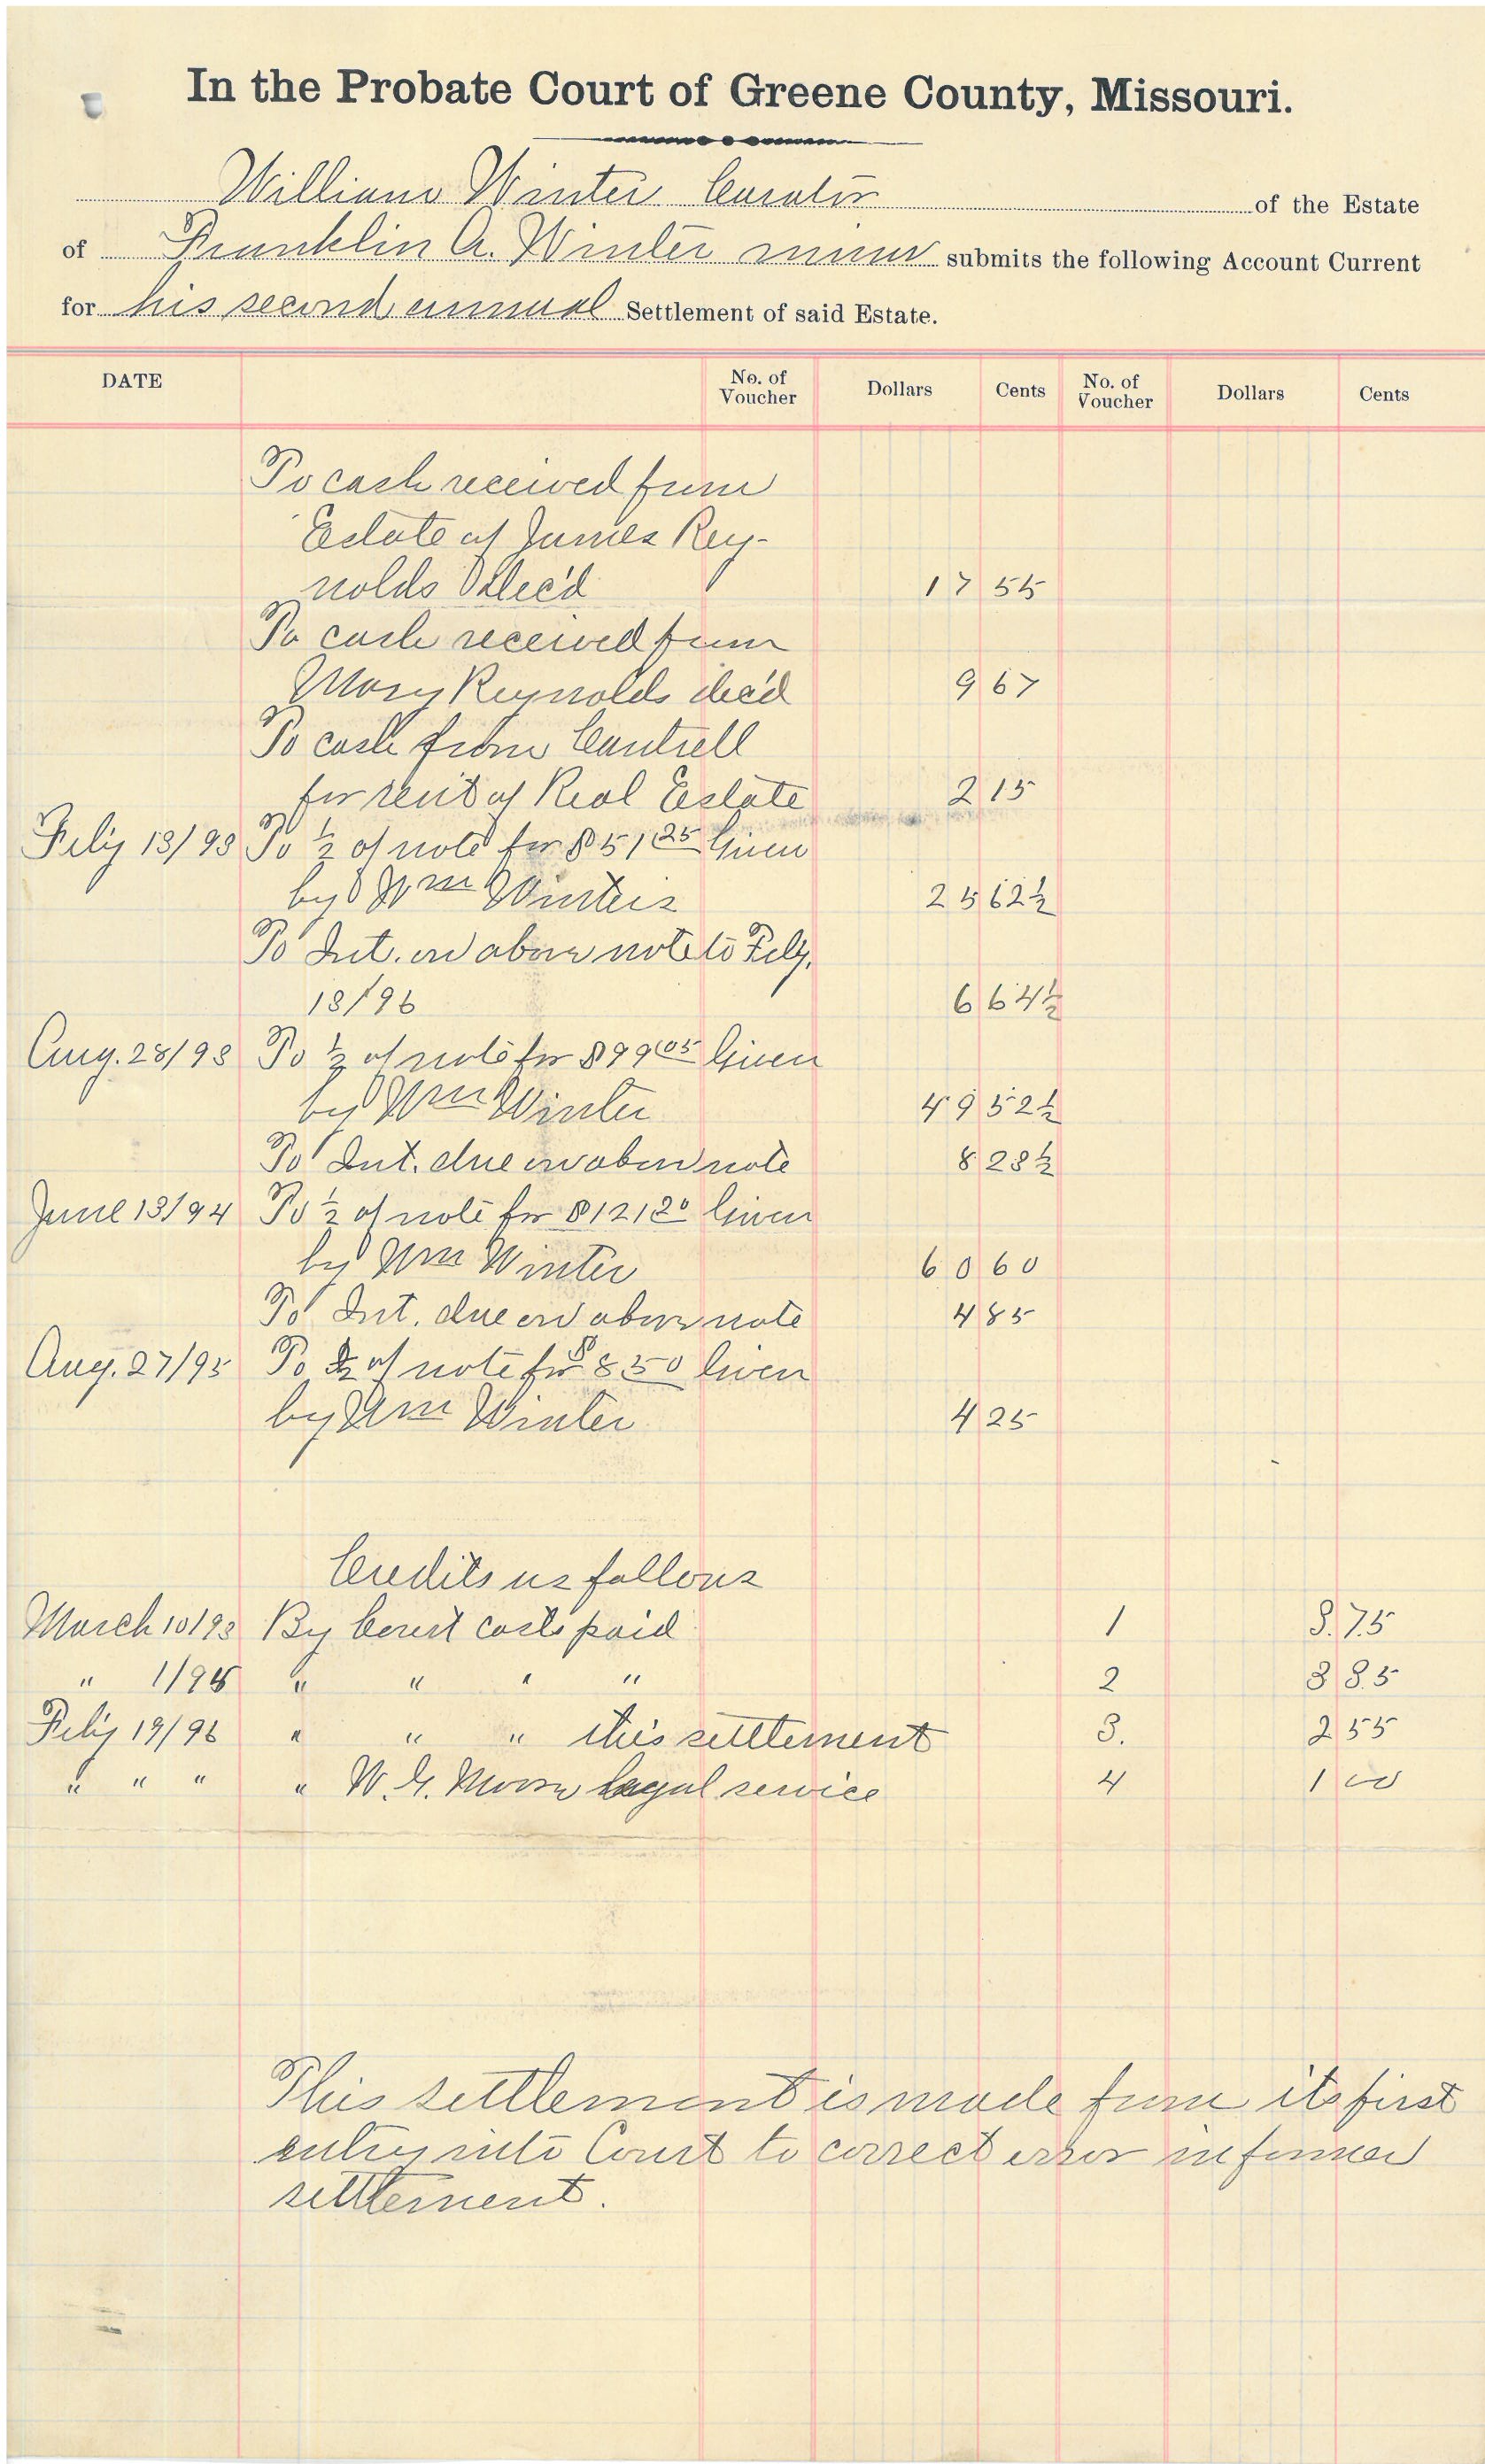 In the Probate Court of Greene County, Missouri.
William Winter Curator of the Estate
of Franklin A. Winter minor submits the following Account Current
for his second annual Settlement of said Estate.
DATE No. of Voucher Dollars Cents No. of Voucher Dollars Cents
To cash received from
Estate of James Rey-
nolds dec'd 17 55
To cash received from
Mary Reynolds dec'd 9 67
To cash from Cantrell
for rent of Real Estate 2 15
Feby 13/93 To ½ of note for $51 25 Given
by Wm Winters 25 62½
To Int. on above note to Feby.
13/96 6 64½
Aug. 28/93 To ½ of note for $99 05 Given
by Wm Winter 49 52½
To Int. due on above note 8 28½
June 13/94 To ½ of note for $121 20 Given
by Wm Winter 60 60
To Int. due on above note 4 85
Aug. 27/95 To ½ of note for $8 50 Given
by Wm Winter 4 25
Credits as follows
March 10/93 By Court costs paid 1 3.75
" 1/95 " " " " 2 3 85
Feby 19/96 " " " this settlement 3. 2 55
" " " " W. G. legal service 4 1 00
This settlement is made from its first
entry into Court to correct error in former
settlement.